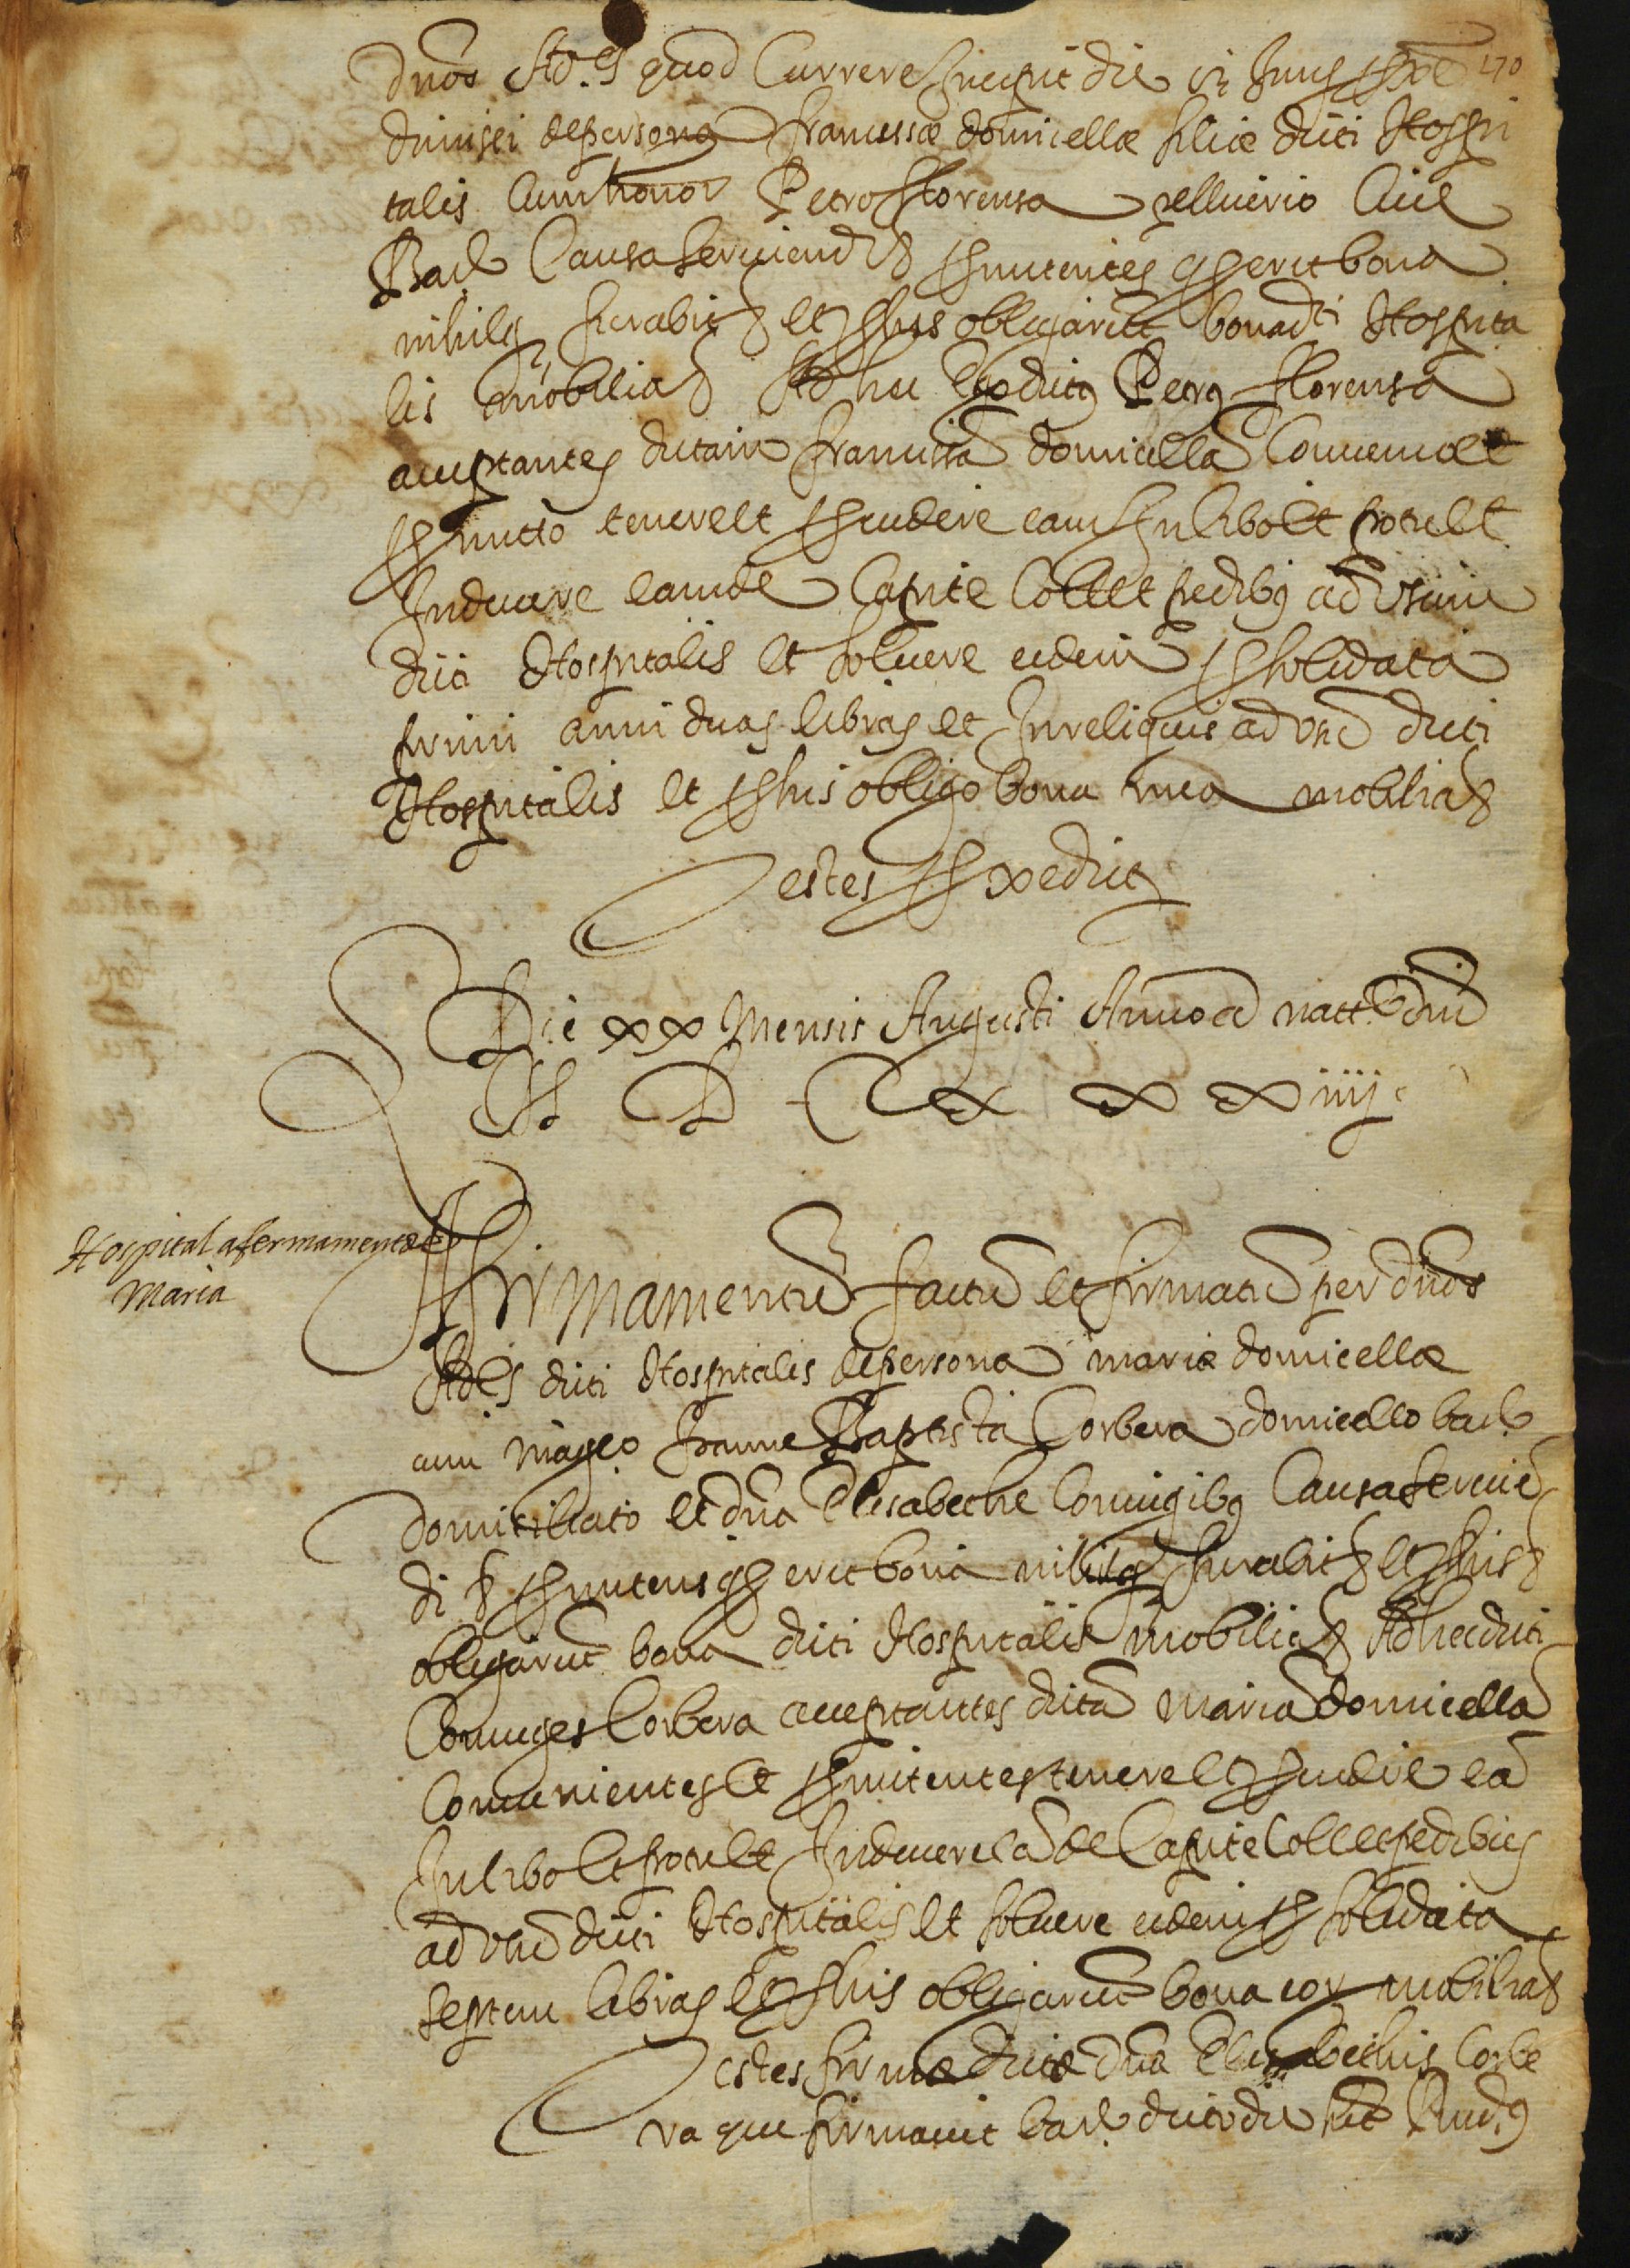 170
dnos Ad.es quod Currere Incepit die vi Junij
de persona franciscæ domicellæ filiæ dicti Hospi
talis Cum honor Petro Florensa pellicerio Cive
Bar̃ Causa serviendi & promittentes erit bona
nihilq̃ furabit & et pro his obligarũt bona dti Hospita
lis mobilia & Ad hec Ego dictus Petrus Florensa
acceptantes dictam franciscã domicellã Convenio et
promitto tenere et eam In cibo et potu et
Induere eamde Capite Collo et pedibus ad usum
dicti Hospitalis et solvere eidem pro solidata
primi anni duas libras et In reliquis ad usũ dicti
Hospitalis et pro his obligo bona mea mobilia &
Testes predictis
Die xx Mensis Augusti Anno a natt.e dnĩ
M D C x x x iiij
Hospital afermament de
Maria
Affirmamentũ factũ et firmatũ per dños
Ad.es dicti Hospitalis de persona mariæ domicellæ
cum magco Joanne Baptista Corbera domicello bar̃
domiciliato et dña Elisabethe Coniugibus Causa servie
di & promittens erit bona nihilq̃ furabit & et pro his &
obligarũt bona dicti Hospitalis mobilia & Ad hec dicti
Coniuges Corbera acceptantes dictã mariã domicellã
Convenientes et promitentes tenere et eã
In cibo et potu et Induere eã de Capite Collo et pedibus
ad usũ dicti Hospitalis et solvere eidem pro solidata
septem libras et pro his obligarũt bona eor mobilia &
Testes firmæ dictæ dña Elisabethis Corbe
ra que firmavit bar̃ dicto die sũt